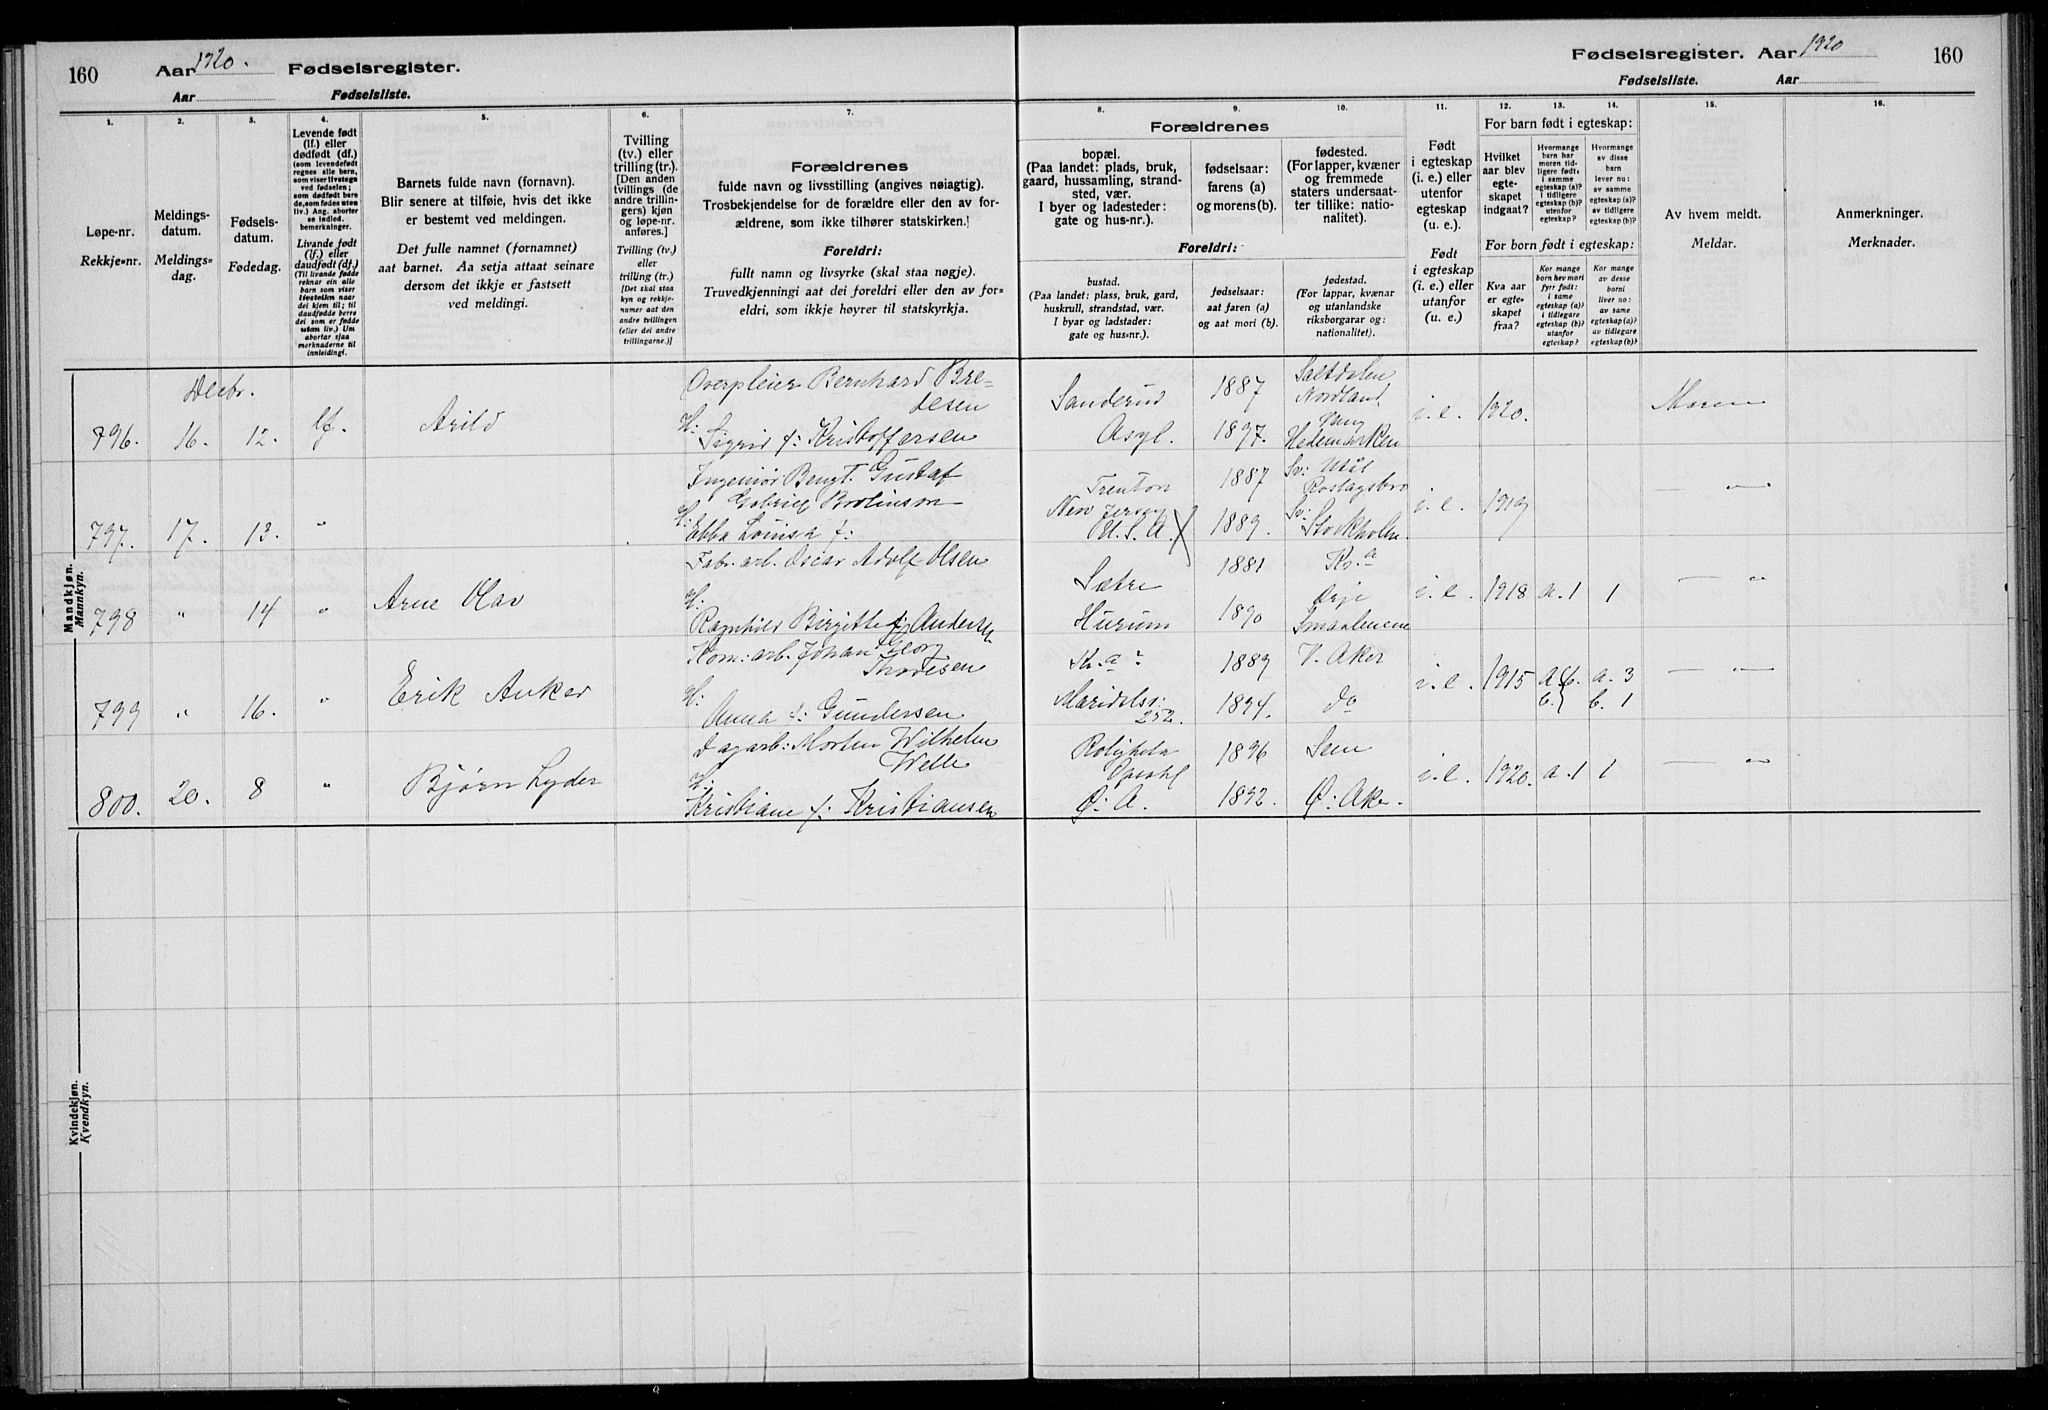 160
Aar 1920. Fødselsregister.
Aar Fødselsliste.
Fødselsregister. Aar 1920
160
Fødselsliste. Aar
1.
2.
3.
4.
5.
6.
7.
8.
9.
10.
11.
12.
13.
14.
15.
16.
Løpe-nr.
Rekkje-nr.
Meldings-
datum.
Meldings-
dag.
Fødsels-
datum.
Fødedag.
Levende født
(lf.) eller
dødfødt (df.)
(som levendefødt
regnes alle barn,
som viser livstegn
ved fødselen;
som dødfødt bare
de, som fødes uten
liv.) Ang. aborter
se indled.
bemerkninger.
Livande født
(lf.) eller
daudfødt (df.)
(Til livande fødde
reknar ein alle
barn som viser
livsteikn naar
dei kjem til; til
daudfødde berre
dei som er fødde
utan liv.) Um
abortar sjaa
merknaderne til
innleidingi.
Barnets fulde navn (fornavn).
Blir senere at tilføie, hvis det ikke
er bestemt ved meldingen.
Det fulle namnet (fornamnet)
aat barnet. Aa setja attaat seinare
dersom det ikkje er fastsett
ved meldingi.
Tvilling
(tv.) eller
trilling (tr.).
[Den anden
tvillings (de
andre trillin-
gers) kjøn
og løpe-nr.
anføres.]
Tvilling (tv.)
eller
trilling (tr.)
[Det skal staa
kyn og rekkje-
numer aat den
andre tvillingen
(eller dei andre
trillingarne.)]
Forældrenes
fulde navn og livsstilling (angives nøiagtig).
Trosbekjendelse for de forældre eller den av for-
ældrene, som ikke tilhører statskirken.
Foreldri:
fullt namn og livsyrke (skal staa nøgje).
Truvedkjenningi aat dei foreldri eller den av for-
eldri, som ikkje høyrer til statskyrkja.
Forældrenes
bopæl.
(Paa landet: plads, bruk,
gaard, hussamling, strand-
sted, vær.
I byer og ladesteder:
gate og hus-nr.).
fødselsaar:
farens (a)
og morens (b).
fødested.
(For lapper, kvæner
og fremmede
staters undersaat-
ter tillike: natio-
nalitet).
Foreldri:
bustad.
(Paa landet: plass, bruk, gard,
huskrull, strandstad, vær.
I byar og ladstader:
gate og hus-nr.).
fødselsaar:
aat faren (a)
og aat mori (b).
fødestad.
(For lappar, kvænar
og utanlandske
riksborgarar og:
nationalitet).
Født
i egteskap
(i. e.) eller
utenfor
egteskap
(u. e.).
Født
i egteskap
(i. e.) eller
utanfor
egteskap
(u. e.)
For barn født i egteskap:
Hvilket
aar blev
egte-
skapet
indgaat?
Hvormange
barn har
moren tid-
ligere født:
i samme
egteskap (a)?
i tidligere
egteskap (b)?
utenfor
egteskap?
Hvormange
av disse
barn
lever nu:
av samme
egteskap (a)?
av tidligere
egteskap (b)?
For born født i egteskap:
Kva aar
er egte-
skapet
fraa?
Kor mange
born hev mori
fyrr født:
i same
egteskap (a)?
i tidlegare
egteskap (b)?
utanfor
egteskap?
Kor mange
av desse
borni
liver no:
av same
egteskap (a)?
av tidlegare
egteskap (b)?
Av hvem meldt.
Meldar.
Anmerkninger.
Merknader.
Mandkjøn.
Mannkyn.
Decbr.
796. 16. 12. lf. Arild
Overpleier Bernhard Bre-
desen
H:
Sigrid f: Kristoffersen
Sanderud
Asyl.
1887
1897.
Saltdalen
Nordland
Vang
Hedemarken
i. e. 1920.
Moren
797. 17. 13. "
Ingeniør Bengt. Gustaf
Gabriel Brolinson
H:
Ebba Louisa f:
Trenton
New Jersey
U. S. A.
1887
1889.
Sv:
Sv: Stockholm.
i. e. 1919
— " —
798 " 14 " Arne Olav
Fabr. arb. Oscar Adolf Olsen
H:
Ragnhild Birgitte f: Andersen
Sætre
Hurum
1881
1890
Kr.a
Ørje
Smaalenene
i. e. 1918 a. 1 1
— " —
799 " 16. " Erik Anker
Kom: arb. Johan Georg
Thoresen
H:
Anna f: Gundersen
Kr.a:
Maridalsv.
252.
1889
1894.
V. Aker
do
i. e. 1915 a. 3
b. 1
— " —
800. 20. 8 " Bjørn Lyder
Dagarb: Morten Wilhelm
Welle
H:
Kristiane f: Kristiansen
Roligheta
Opsahl
Ø: A.
1896
1892.
Sem
Ø: Aker.
i. e. 1920. a. 1 1
— " —
Kvindekjøn.
Kvendkyn.